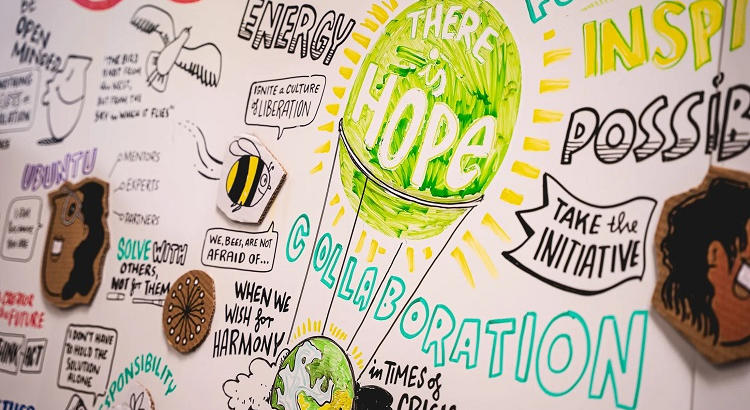 BE
OPEN
MINDED
"THE BIRD
IS NOT FROM
THE NEST,
BUT FROM THE
SKY IN WHICH IT FLIES"
ENERGY
IGNITE a CULTURE
of LIBERATION
THERE
is
HOPE
INSPI
POSSIB
UBUNTU
MENTORS
EXPERTS
PARTNERS
SOLVE WITH
OTHERS,
NOT for THEM
WE, BEES, ARE NOT
AFRAID OF...
TAKE the
INITIATIVE
COLLABORATION
WHEN WE
WISH for
HARMONY
in TIMES of
CRISIS
the FUTURE
THINK + ACT
I DON'T HAVE
TO HOLD THE
SOLUTION
ALONE
RESPONSIBILITY